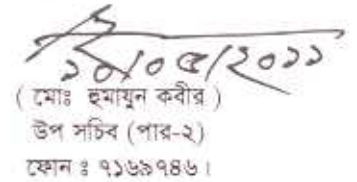 ১০/০৫/২০১১
( মোঃ হুমায়ুন কবীর )
উপ সচিব (পার-২)
ফোন ঃ ৭১৬৯৭৪৬।